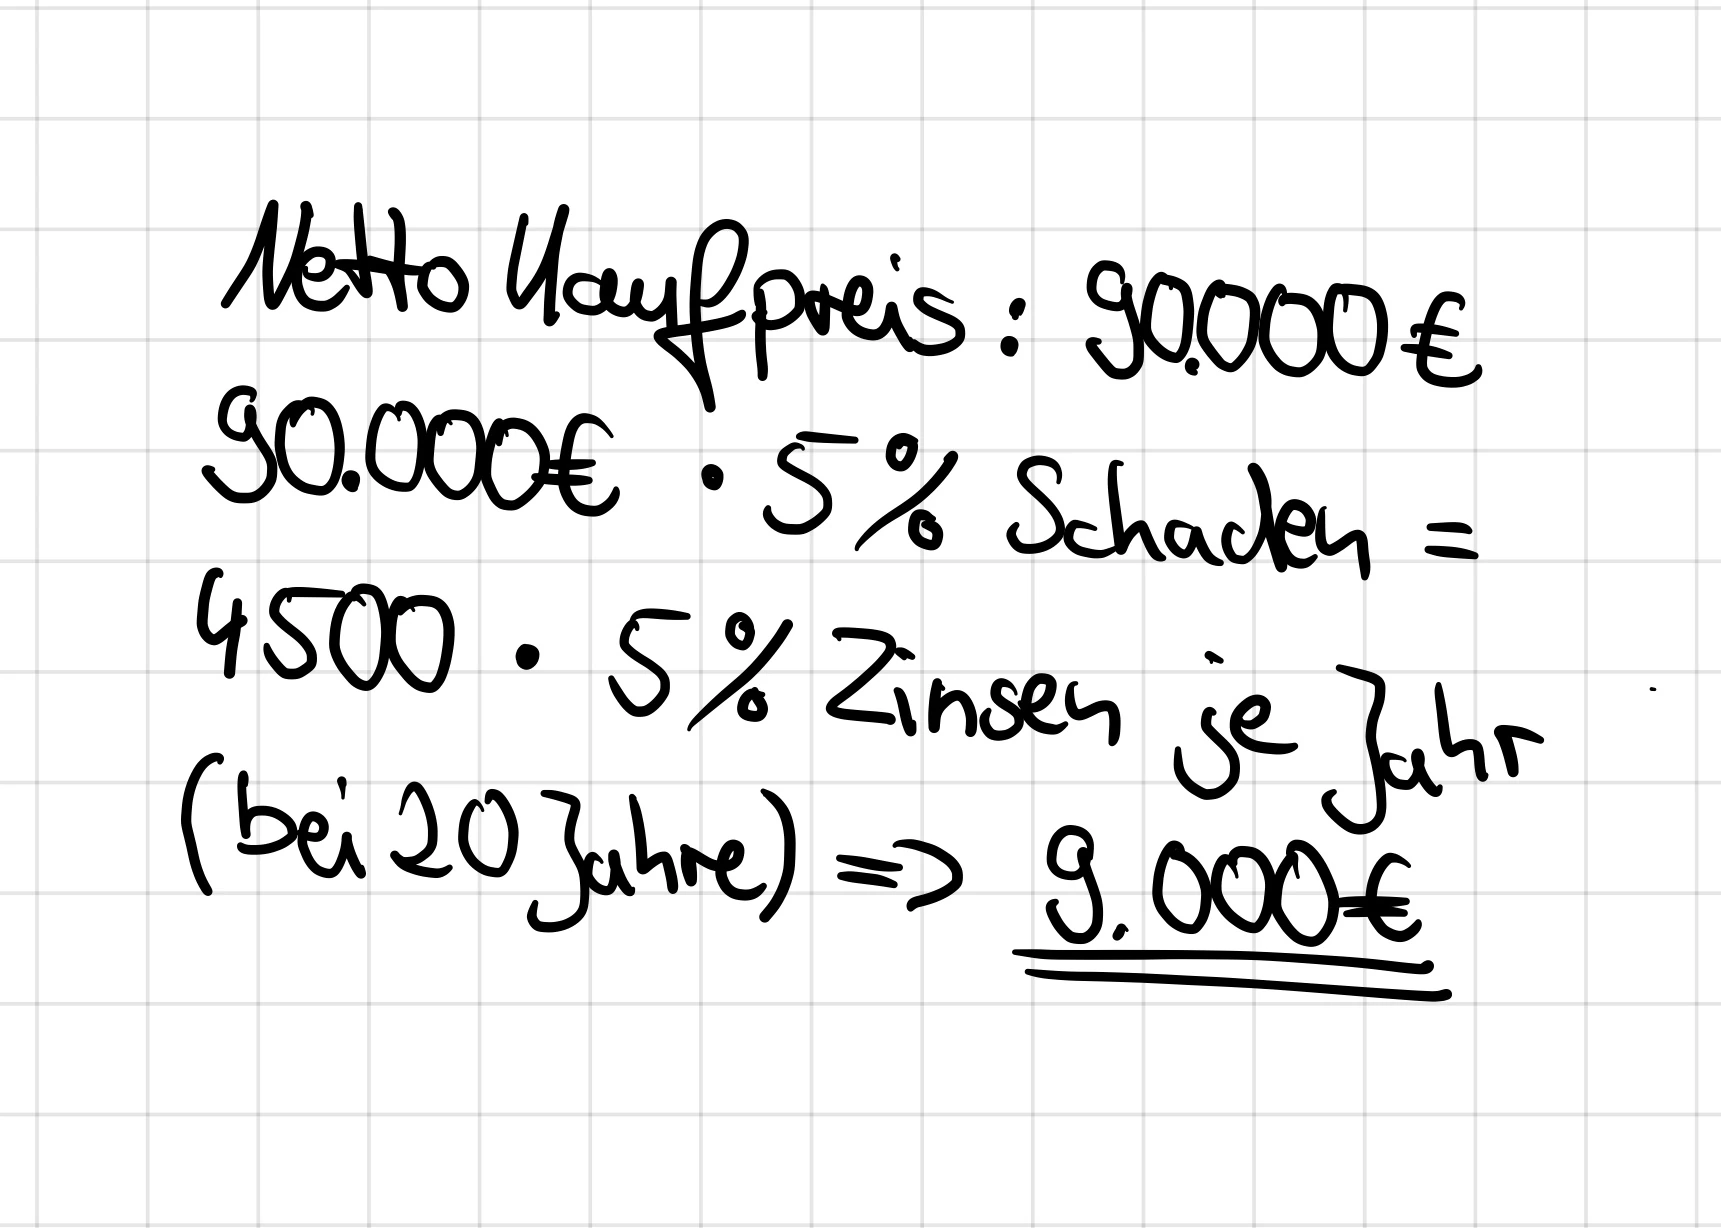 Netto Kaufpreis: 90.000€
90.000€ · 5% Schaden =
4500 · 5% Zinsen je Jahr
(bei 20 Jahre) => 9.000€